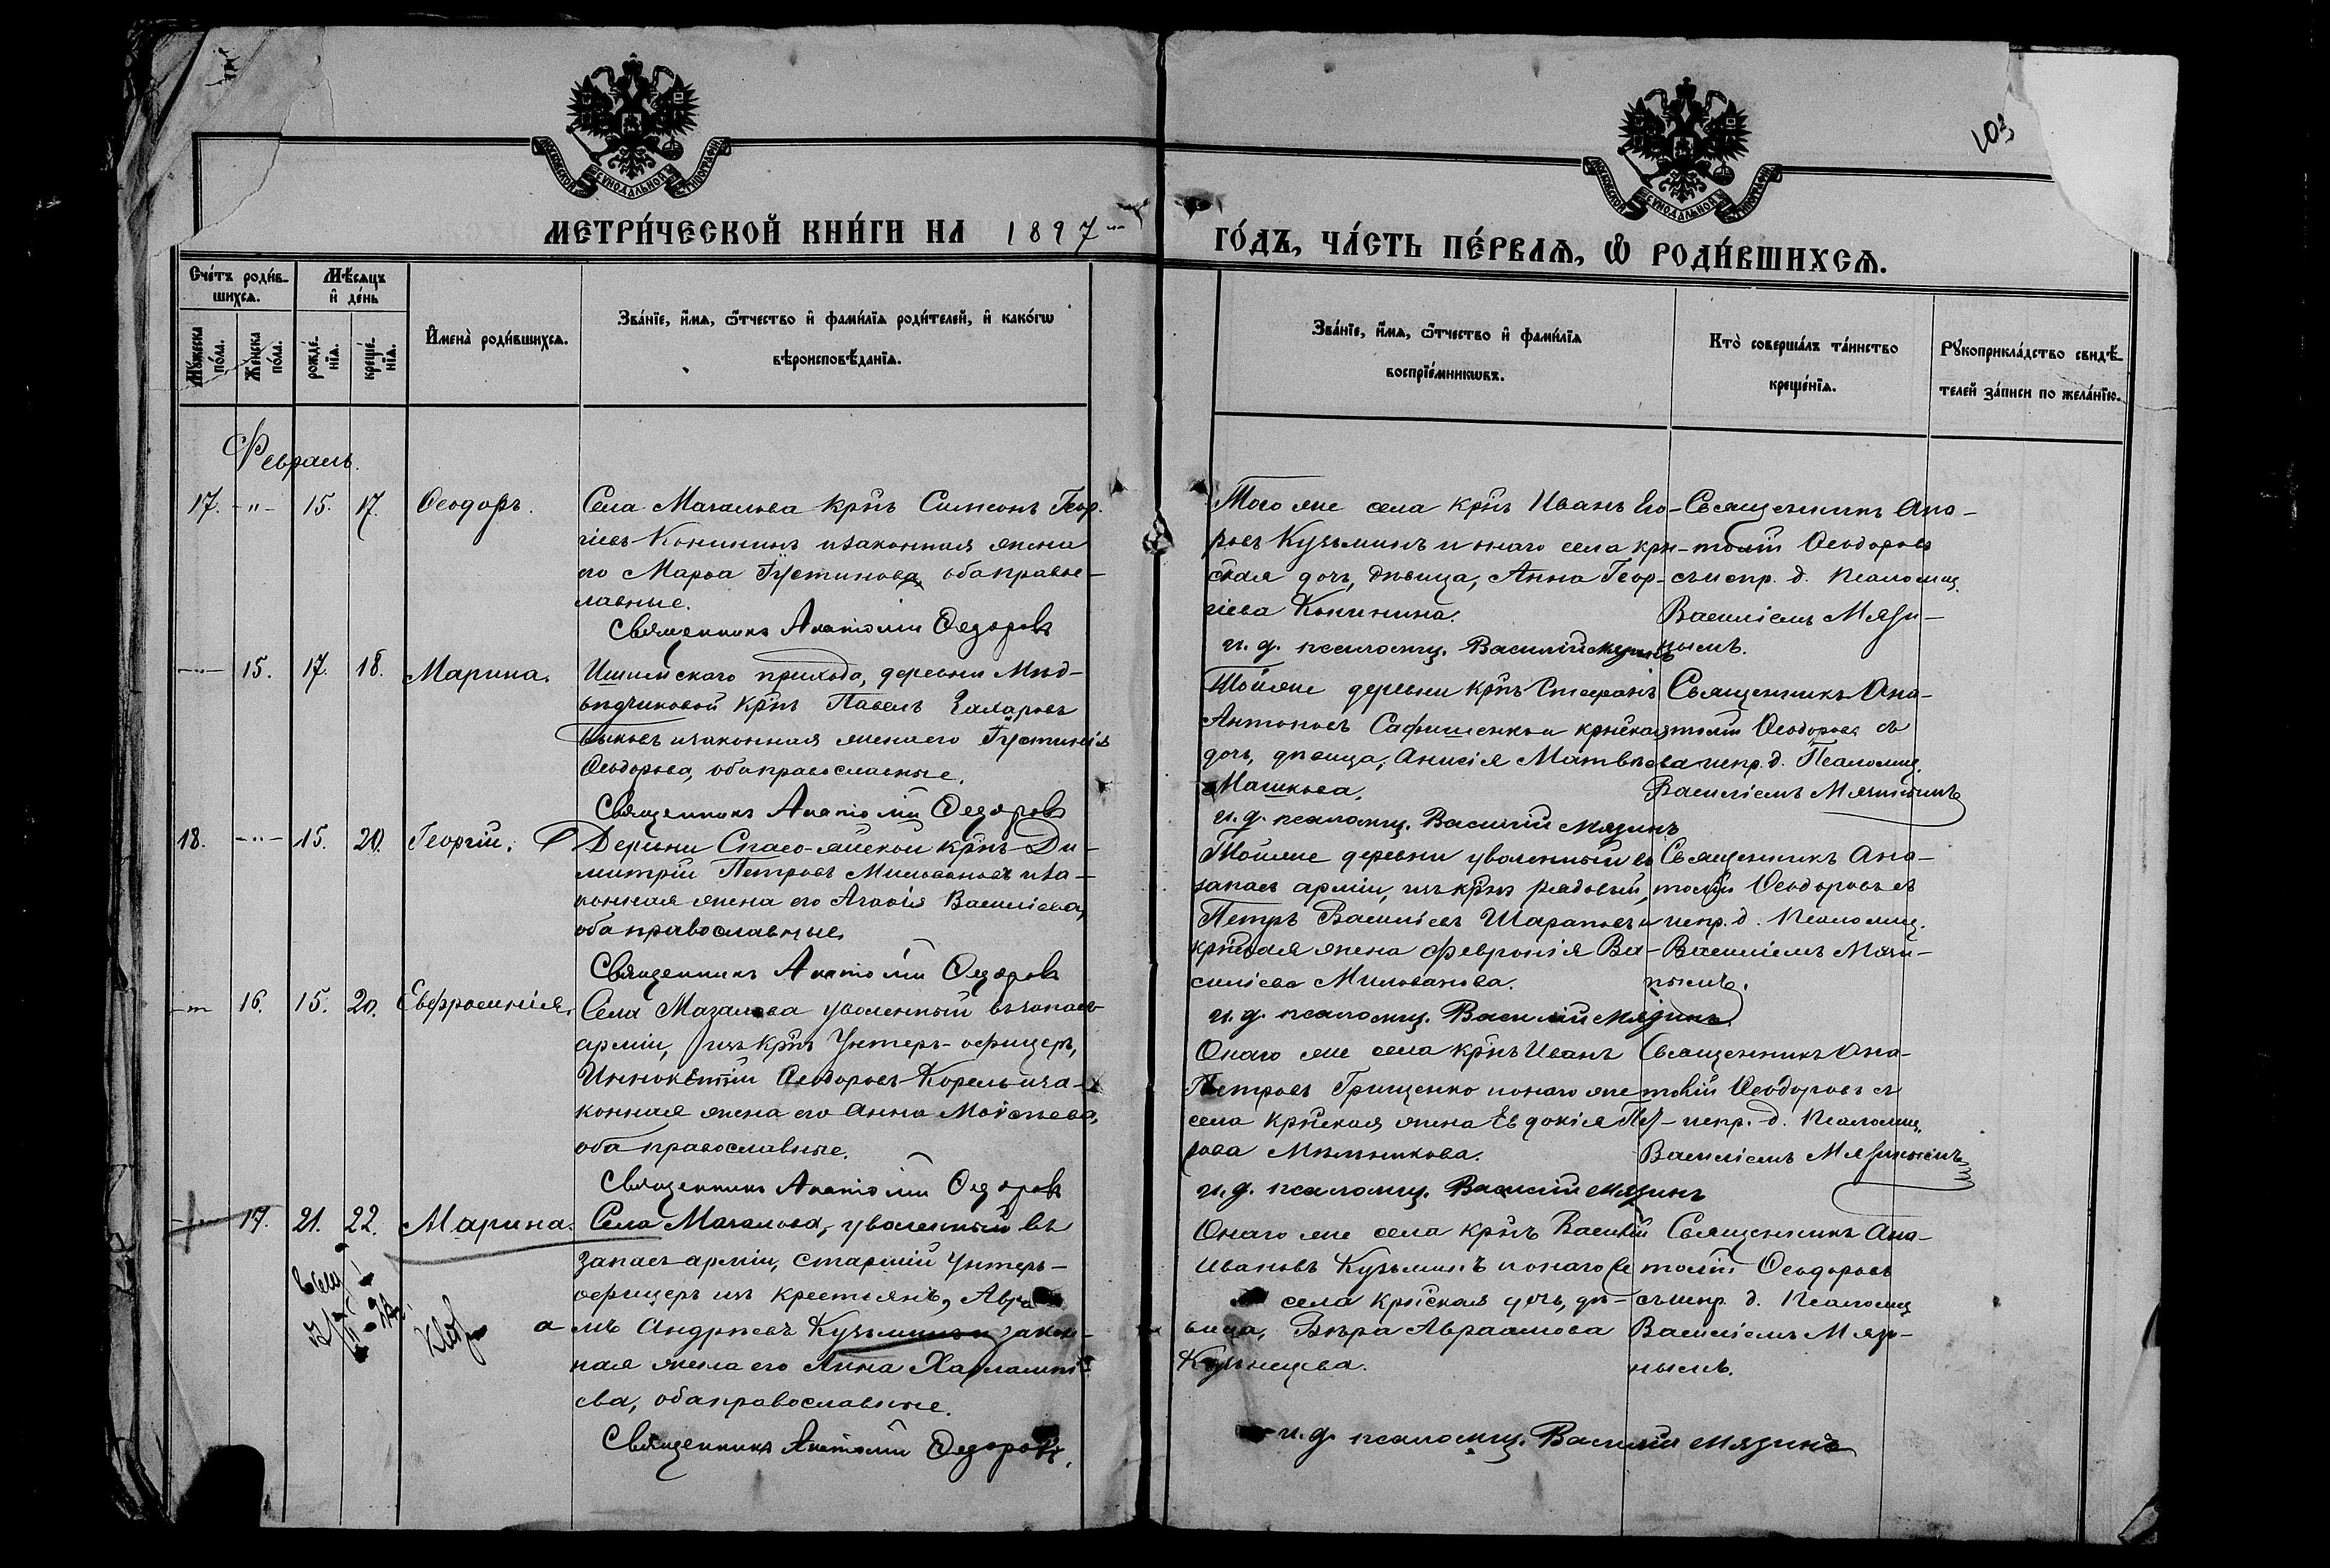 103
МОСКОВСКОЙ СѴНОДАЛЬНОЙ ТИПОГРАФІИ
МОСКОВСКОЙ СѴНОДАЛЬНОЙ ТИПОГРАФІИ
МЕТРИ́ЧЕСКОЙ КНИ́ГИ НА 1897
ГО́ДЪ, ЧА́СТЬ ПЕ́РВАѦ, Ѽ РОДИ́ВШИХСѦ.
Сче́тъ роди́в-
шихсѧ.
Мѣ́сѧцъ
и҆ де́нь
Мꙋ́жеска
по́ла.
Же́нска
по́ла.
рожде́-
нїѧ.
креще́-
нїѧ.
И҆мена̀ роди́вшихсѧ.
Зва́нїе, и҆́мѧ, ѻ҆́тчество и҆ фами́лїѧ роди́телей, и҆ како́гѡ
вѣроисповѣ́данїѧ.
Зва́нїе, и҆́мѧ, ѻ҆́тчество и҆ фами́лїѧ
воспрїе́мникѡвъ.
Кто̀ соверша́лъ та́инство
креще́нїѧ.
Рꙋкоприкла́дство свидѣ́-
телей за́писи по жела́нїю.
Февраль.
17. -"- 15. 17. Ѳеодоръ.
Села Мазалова крнъ Симеонъ Геор-
гіевъ Конининъ и законная жена
его Марѳа Іустинова, оба правос-
лавные.
Священникъ Анатолій Ѳедоровъ
Того же села крнъ Иванъ Его-
ровъ Кузьминъ и онаго села крн-
ская дочь, дѣвица, Анна Геор-
гіева Конинина.
и. д. псаломщ. Василій Мязинъ
Священникъ Ана-
толій Ѳеодоровъ
съ испр. д. Псаломщ.
Василіемъ Мязи-
нымъ.
-"- 15. 17. 18. Марина.
Ишимскаго прихода, деревни Мѣд-
вѣдчиковой крнъ Павелъ Захаровъ
Быковъ и законная жена его Іустинія
Ѳеодорова, оба православные.
Священникъ Анатолій Ѳедоровъ
Той же деревни крнъ Стефанъ
Антоновъ Сафишенко и крнская
дочь, дѣвица, Анисія Матвѣева
Машкова.
и. д. псаломщ. Василій Мязинъ
Священникъ Ана-
толій Ѳеодоровъ съ
испр. д. Псаломщ.
Василіемъ Мязинымъ
18. -"- 15. 20. Георгій.
Деревни Спасо-Яйской крнъ Ди-
митрій Петровъ Миловановъ и за-
конная жена его Агаѳія Василіева,
оба православные.
Священникъ Анатолій Ѳедоровъ
Той же деревни уволенный въ
запасъ арміи, изъ крнъ рядовый,
Петръ Василіевъ Шараповъ и
крнская жена Февронія Ва-
силіева Милованова.
и. д. псаломщ. Василій Мязинъ
Священникъ Ана-
толій Ѳеодоровъ съ
испр. д. Псаломщ.
Василіемъ Мязи-
нымъ.
-"- 16. 15. 20. Евфросинія.
Села Мазалова уволенный въ запасъ
арміи, изъ крнъ Унтеръ-офицеръ,
Иннокентій Ѳеодоровъ Корель и за-
конная жена его Анна Моисѣева,
оба православные.
Священникъ Анатолій Ѳедоровъ
Онаго же села крнъ Иванъ
Петровъ Грищенко и онаго же
села крнская жена Евдокія Пет-
рова Мельникова.
и. д. псаломщ. Василій Мязинъ
Священникъ Ана-
толій Ѳеодоровъ съ
испр. д. Псаломщ.
Василіемъ Мязинымъ
17. 21. 22. Марина.
Села Мазалова, уволенный въ
запасъ арміи, старшій Унтеръ-
офицеръ изъ крестьянъ, Авра
а- мъ Андреевъ Кузьминъ и закон-
ная жена его Анна Харлампі-
ева, оба православные.
Священникъ Анатолій Ѳедоровъ.
Онаго же села крнъ Василій
Ивановъ Кузьминъ и онаго
села крнская дочь, дѣ-
вица, Вѣра Авраамова
Кузнецова.
и. д. псаломщ. Василій Мязинъ
Священникъ Ана-
толій Ѳеодоровъ
съ испр. д. Псаломщ
Василіемъ Мязи-
нымъ.